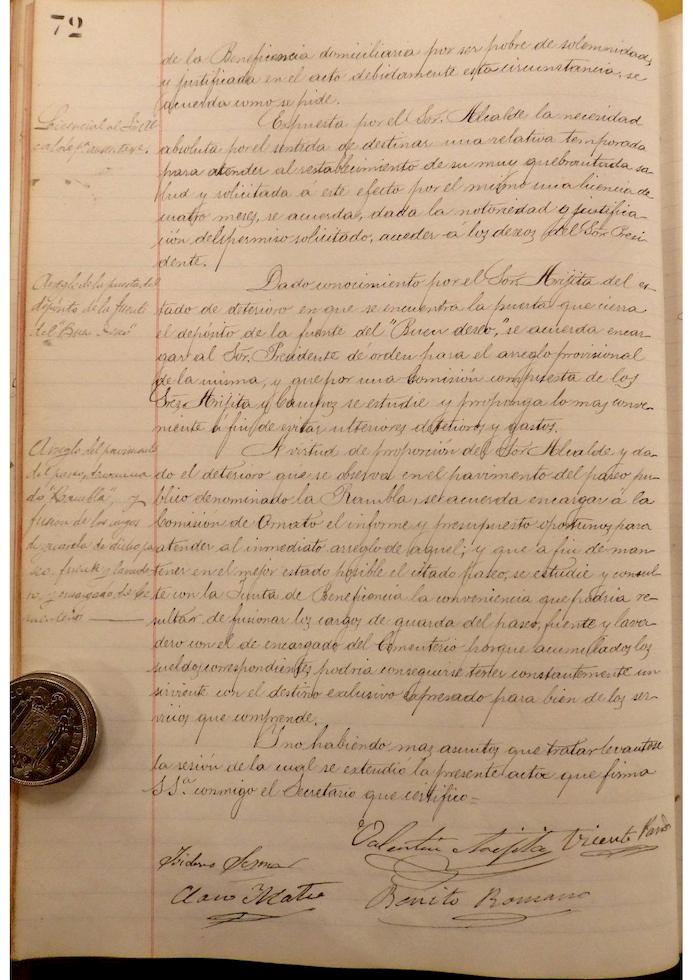 72
de la Beneficencia domiciliaria por ser pobre de solemnidad,
y justificada en el acto debidamente esta circunstancia, se
acuerda como se pide.
Licencia al Sor. Al
calde para ausentarse.
Expuesta por el Sor. Alcalde la necesidad
absoluta por el sentida de destinar una relativa temporada
para atender al restablecimiento de su muy quebrantada sa-
lud y solicitada á este efecto por el mismo una licencia de
cuatro meses, se acuerda, dada la notoriedad y justifica-
ción del permiso solicitado, acceder á los deseos del Sor. Presi-
dente.
Arreglo de la puerta del
depósito de la fuente
del "Buen deseo"
Dado conocimiento por el Sor. Arijita del es-
tado de deterioro en que se encuentra la puerta que cierra
el depósito de la fuente del "Buen deseo," se acuerda encar-
gar al Sor. Presidente dé orden para el arreglo provisional
de la misma, y que por una Comisión compuesta de los
Sres. Arijita y Campos se estudie y proponga lo mas conve-
niente á fin de evitar ulteriores deterioros y gastos.
Arreglo del pavimento
del paseo, denomina
do "Rambla", y
fusion de los cargos
de guarda de dicho pa
seo, fuente y lavade
ro, y encargado del Ce
menterio
A virtud de proporción del Sor. Alcalde y da-
do el deterioro que se observa en el pavimento del paseo pu-
blico denominado la Rambla, se acuerda encargar á la
Comisión de Ornato el informe y presupuesto oportunos para
atender al inmediato arreglo de aquel; y que a fin de man-
tener en el mejor estado posible el citado paseo, se estudie y consul-
te con la Junta de Beneficencia la conveniencia que podria re-
sultar de fusionar los cargos de guarda del paseo, fuente y lava-
dero con el de encargado del Cementerio porque acumulados los
sueldos correspondientes podria conseguirse tener constantemente un
sirviente con el destino exclusivo expresado para bien de los ser-
vicios que comprende.
Y no habiendo mas asuntos que tratar levantose
la sesión de la cual se extendió la presente acta que firma
S.Sª. conmigo el Secretario que certifico=
Valentin Arijita Vicente Pardo
Isidoro
Claro Mateo Benito Romano
PESETAS